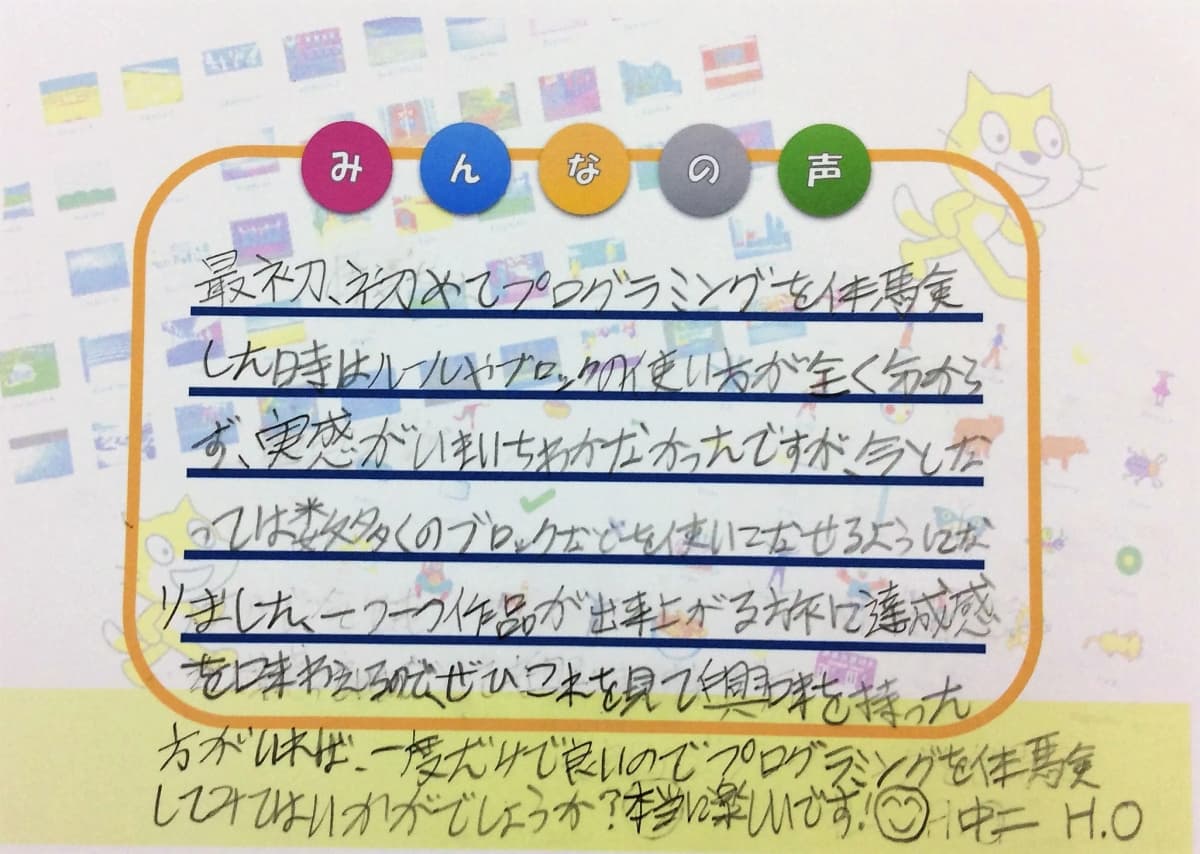 みんなの声
最初、初めてプログラミングを体験
した時はルールやブロックの使い方が全く分から
ず、実感がいまいちわかなかったんですが、今とな
っては数多くのブロックなどを使いこなせるようにな
りました、一つ一つ作品が出来上がる旅に達成感
を味わえるので、ぜひこれを見て興味を持った
方がいれば、一度だけで良いのでプログラミングを体験
してみてはいかがでしょうか?本当に楽しいです!😊 中二 H.O